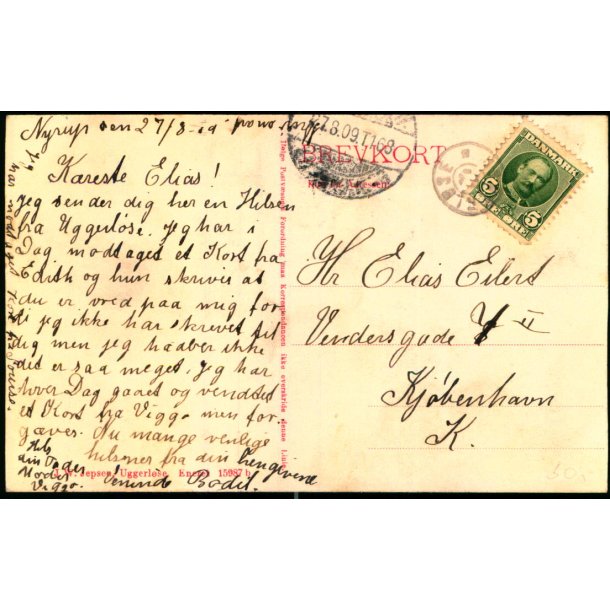 Nyrup den 27/8-19
Kæreste Elias!
Jeg sender dig her en Hilsen
fra Uggerløse. Jeg har i
Dag modtaget et Kort fra
Edith og hun skriver at
du er vred paa mig for
di jeg ikke har skrevet til
dig men jeg haaber ikke
det er saa meget. Jeg har
hver Dag gaaet og ventet
et Kort fra Viggo men for-
gæves. Nu mange venlige
hilsner fra din hengivne
Veninde Bodil.
Hils
din Fader
Moder
Viggo.
BREVKORT
27.8.09.
DANMARK
5 5
ØRE
Hr Elias Eilert
Vendersgade 4 II
Kjøbenhavn
K.
Ifølge Postvæsenets Forordning maa Korrespondancen ikke overskride denne Linie
J. W. Jepsen, Uggerløse. Eneret 15987 b
50.